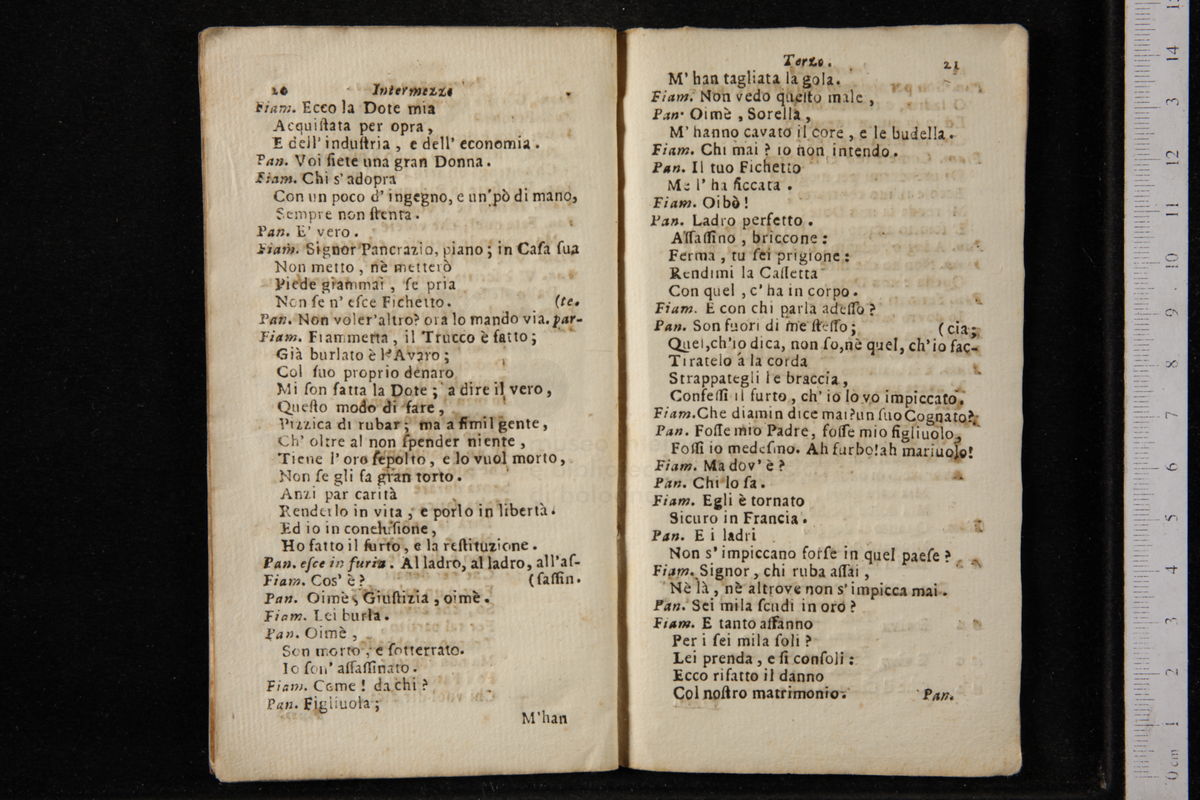 20 Intermezzo
Fiam. Ecco la Dote mia
Acquiſtata per opra,
E dell' induſtria, e dell' economia.
Pan. Voi ſiete una gran Donna.
Fiam. Chi s' adopra
Con un poco d' ingegno, e un pò di mano,
Sempre non ſtenta.
Pan. E' vero.
Fiam. Signor Pancrazio, piano; in Caſa ſua
Non metto, nè metterò
Piede giammai, ſe pria
Non ſe n' eſce Fichetto. (te.
Pan. Non voler'altro? ora lo mando via. par-
Fiam. Fiammetta, il Trucco è fatto;
Già burlato è l'Avaro;
Col ſuo proprio denaro
Mi ſon fatta la Dote; a dire il vero,
Queſto modo di fare,
Pizzica di rubar; ma a ſimil gente,
Ch' oltre al non ſpender niente,
Tiene l' oro ſepolto, e lo vuol morto,
Non ſe gli fa gran torto.
Anzi par carità
Renderlo in vita, e porlo in libertà.
Ed io in concluſione,
Ho fatto il furto, e la reſtituzione.
Pan. eſce in furia. Al ladro, al ladro, all'aſ-
Fiam. Cos' è? (ſaſſin.
Pan. Oimè, Giuſtizia, oimè.
Fiam. Lei burla.
Pan. Oimè,
Son morto, e ſotterrato.
Io ſon' aſſaſſinato.
Fiam. Come! da chi?
Pan. Figliuola;
M'han
Terzo. 21
M' han tagliata la gola.
Fiam. Non vedo queſto male,
Pan. Oimè, Sorella,
M' hanno cavato il core, e le budella.
Fiam. Chi mai? io non intendo.
Pan. Il tuo Fichetto
Me l' ha ficcata.
Fiam. Oibò!
Pan. Ladro perfetto.
Aſſaſſino, briccone:
Ferma, tu ſei prigione:
Rendimi la Caſſetta
Con quel, c' ha in corpo.
Fiam. E con chi parla adeſſo?
Pan. Son fuori di me ſteſſo; (cia;
Quel,ch'io dica, non ſo,nè quel, ch'io fac-
Tiratelo á la corda
Strappategli le braccia,
Confeſſi il furto, ch' io lo vo impiccato.
Fiam.Che diamin dice mai?un ſuo Cognato?
Pan. Foſſe mio Padre, foſſe mio figliuolo,
Foſſi io medeſimo. Ah furbo!ah mariuolo!
Fiam. Ma dov' è?
Pan. Chi lo ſa.
Fiam. Egli è tornato
Sicuro in Francia.
Pan. E i ladri
Non s' impiccano forſe in quel paeſe?
Fiam. Signor, chi ruba aſſai,
Nè là, nè altrove non s' impicca mai.
Pan. Sei mila ſcudi in oro?
Fiam. E tanto affanno
Per i ſei mila ſoli?
Lei prenda, e ſi conſoli:
Ecco rifatto il danno
Col noſtro matrimonio. Pan.
0 cm 1 2 3 4 5 6 7 8 9 10 11 12 3 14